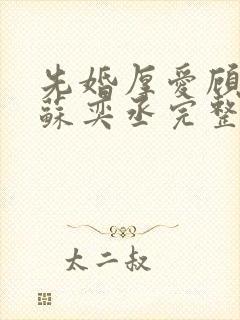 先婚厚爱顾
蘇奕丞完整
太二叔